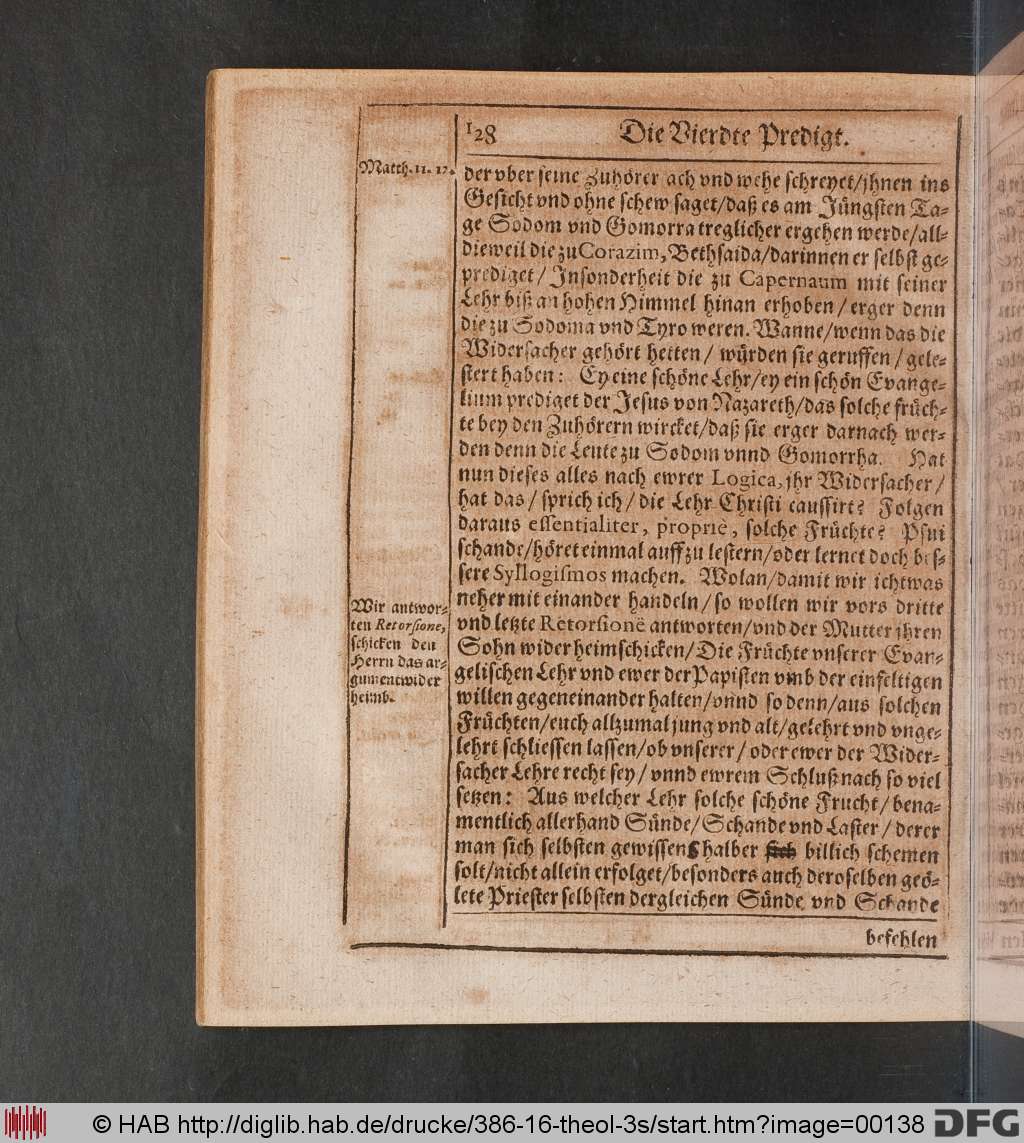 128 Die Vierdte Predigt.
Matth. 11. 17.
der vber seine Zuhörer ach vnd wehe schreyet/jhnen ins
Gesicht vnd ohne schew saget/daß es am Jüngsten Ta-
ge Sodom vnd Gomorra treglicher ergehen werde/all-
dieweil die zu Corazim, Bethsaida/darinnen er selbst ge-
prediget/ Insonderheit die zu Capernaum mit seiner
Lehr biß an hohen Himmel hinan erhoben/ erger denn
die zu Sodoma vnd Tyro weren. Wanne/wenn das die
Widersacher gehört hetten/ würden sie geruffen/ gele-
stert haben: Ey eine schöne Lehr/ey ein schön Evange-
lium prediget der Jesus von Nazareth/das solche früch-
te bey den Zuhörern wircket/daß sie erger darnach wer-
den denn die Leute zu Sodom vnnd Gomorrha. Hat
nun dieses alles nach ewrer Logica, jhr Widersacher/
hat das/ sprich ich/ die Lehr Christi caussirt? Folgen
daraus essentialiter, propriè, solche Früchte? Pfui
schande/höret einmal auff zu lestern/oder lernet doch bes-
sere Syllogismos machen. Wolan/damit wir ichtwas
neher mit einander handeln/ so wollen wir vors dritte
vnd letzte Retorsionē antworten/vnd der Mutter jhren
Sohn wider heimschicken/ Die Früchte vnserer Evan-
gelischen Lehr vnd ewer der Papisten vmb der einfeltigen
willen gegeneinander halten/vnnd so denn/aus solchen
Früchten/euch allzumal jung vnd alt/gelehrt vnd vnge-
lehrt schliessen lassen/ob vnserer/ oder ewer der Wider-
sacher Lehre recht sey/ vnnd ewrem Schluß nach so viel
setzen: Aus welcher Lehr solche schöne Frucht/ bena-
mentlich allerhand Sünde/ Schande vnd Laster/ derer
man sich selbsten gewissens halber sich billich schemen
solt/nicht allein erfolget/besonders auch deroselben geö-
lete Priester selbsten dergleichen Sünde vnd Schande
befehlen
Wir antwor-
ten Retorsione,
schicken den
Herrn das ar-
gument wider
heimb.
© HAB http://diglib.hab.de/drucke/386-16-theol-3s/start.htm?image=00138
DFG